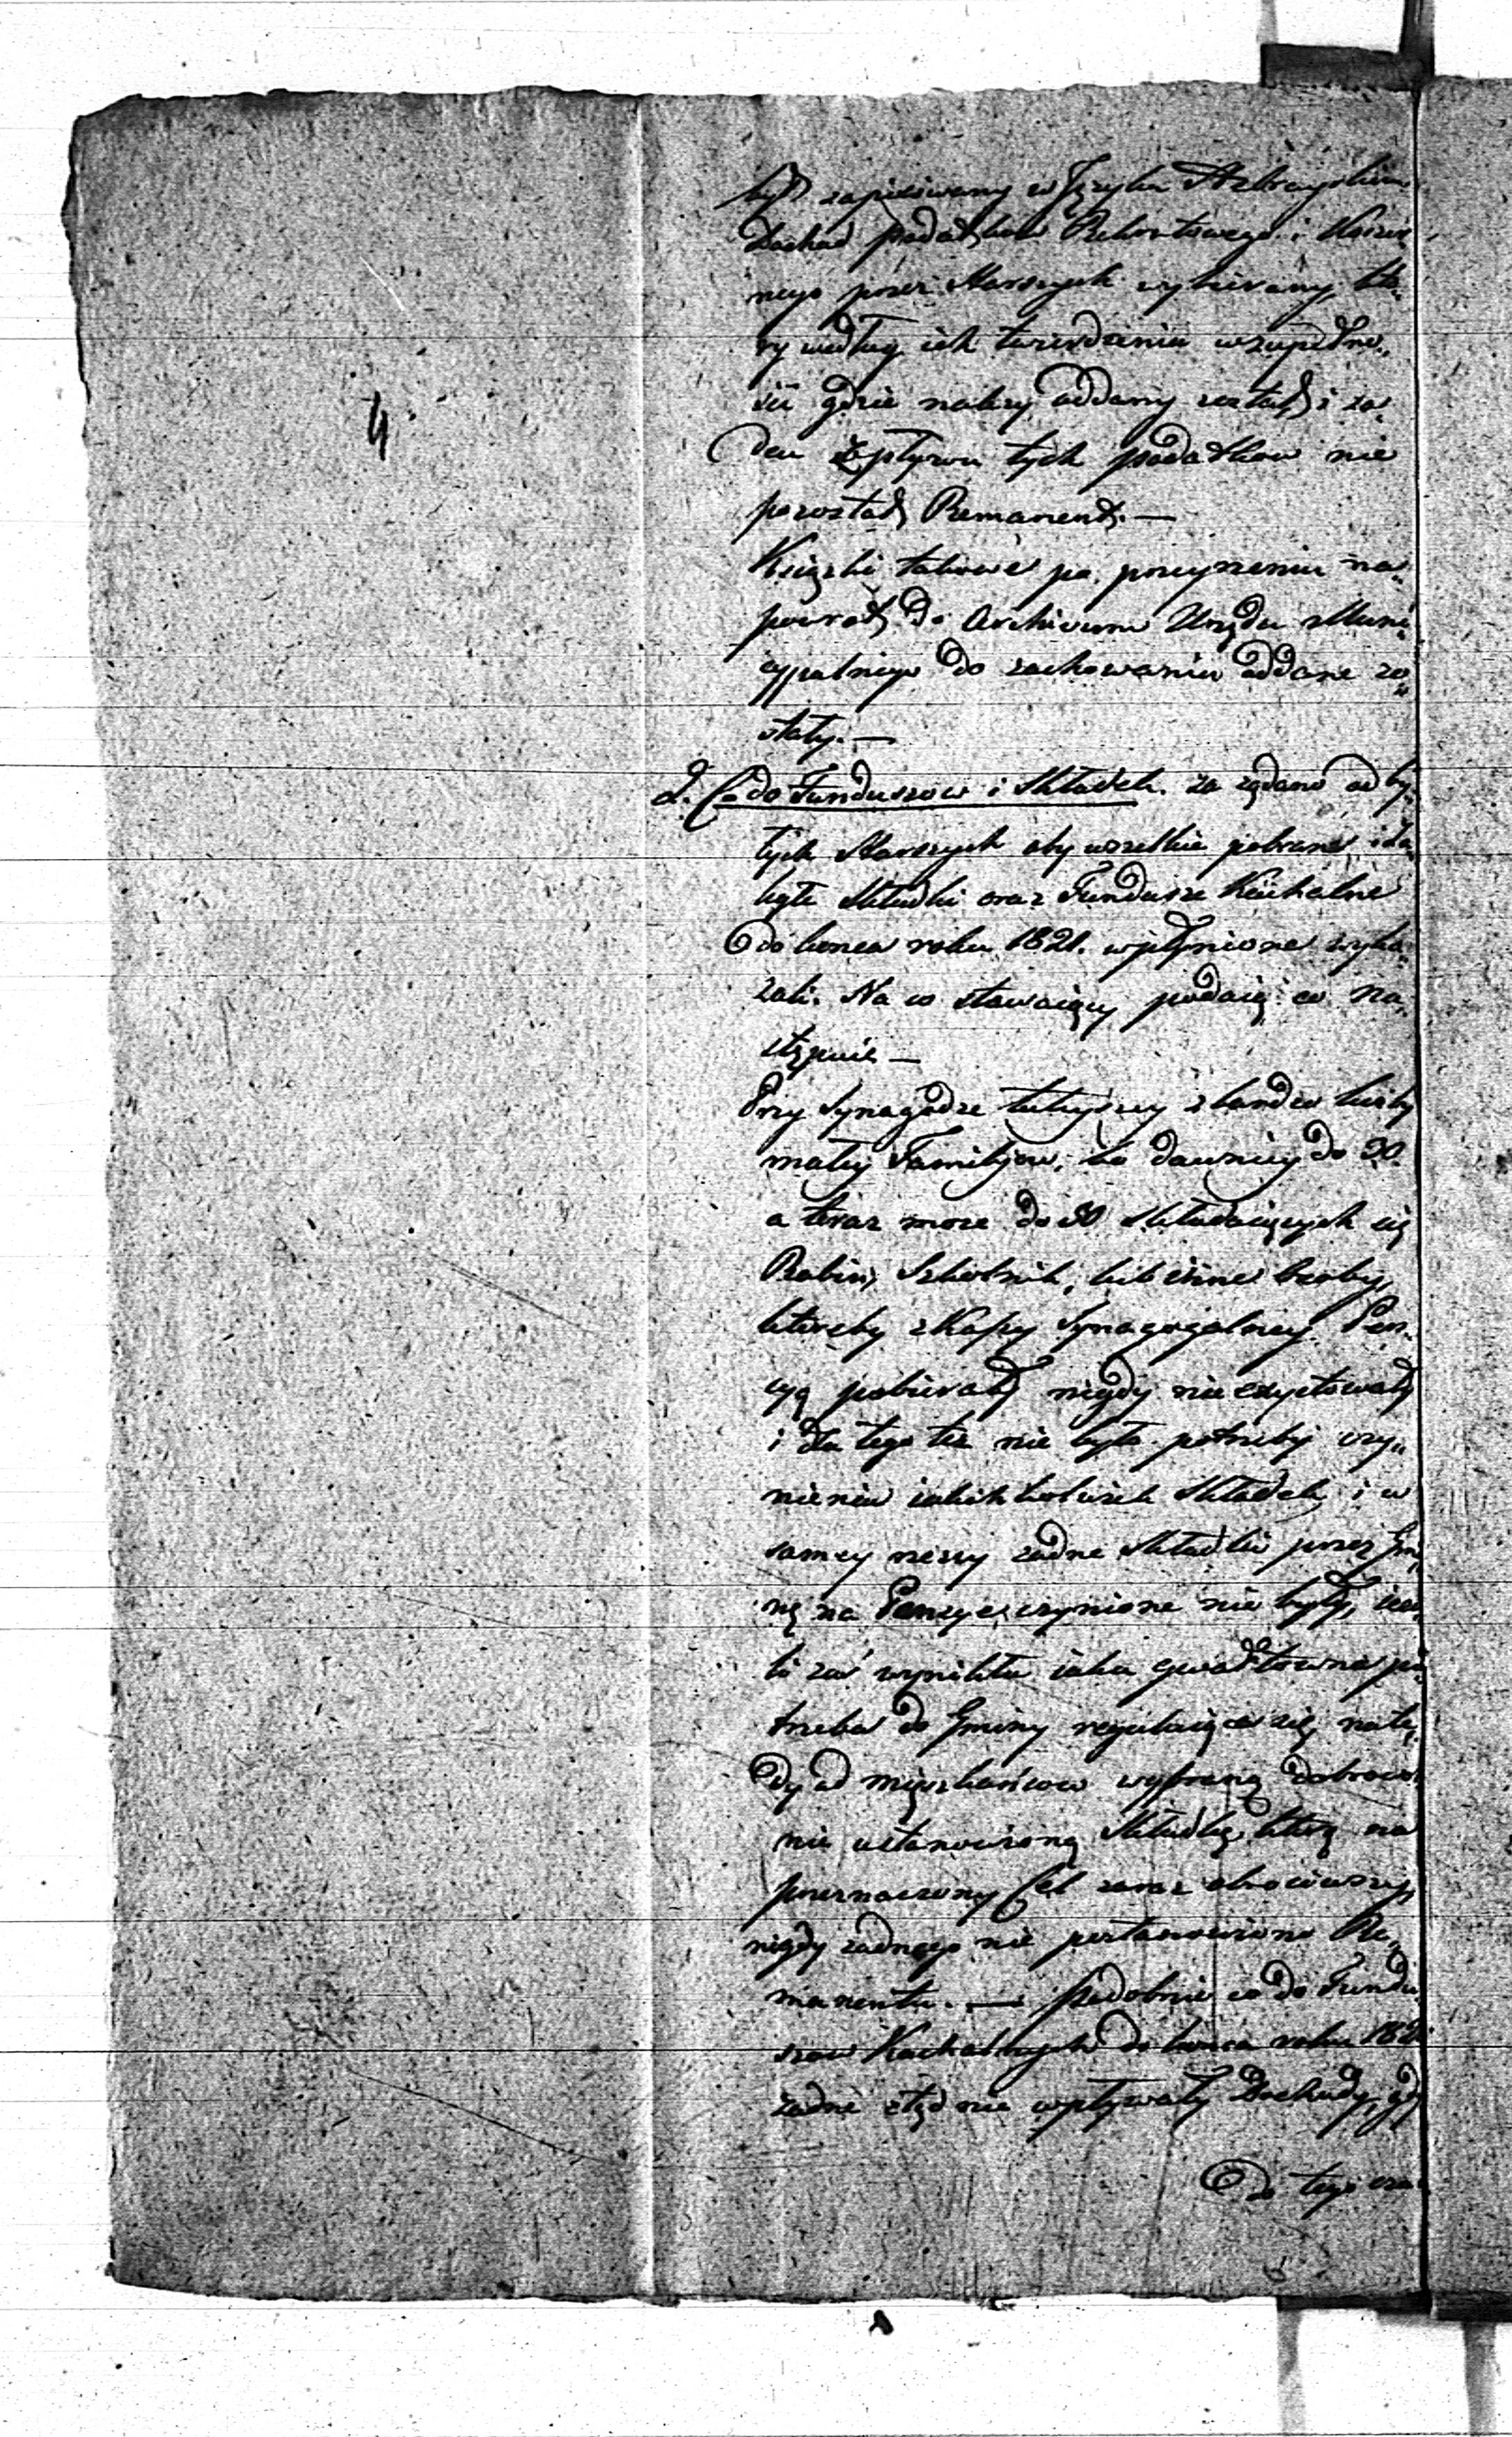 był zapisiwany w Języku Hebrayskim
Dochod podatkow Rekrutowego i Koszer
nego przez Starszych wybierany, któ„
ry według ich twierdzenia w zupełno„
ści gdzie należy oddany został i ża„
den z wpływu tych podatkow nie
pozostał Remanent. —
Książki takowe po przeyrzeniu na„
powrót do Archivum Urzędu Muni„
cypalnego do zachowania oddane zo„
stały. —
2. Co do Funduszow i Składek. za żądano od by„
łych Starszych aby wszelkie pobrane i
Składki oraz Fundusze Kachalne
do konca roku 1821. wpłynione wyka„
zali. Na co stawaiący podaią co na„
stępuie —
Przy Synagodze tuteyszey z bardzo liczby
małey Familyow, bo dawniey do 20.
a teraz może do składaiących się
Rabin, Szkolnik, lub inne Osoby,
któreby z Kassy Synagogalney Pen„
cyą pobierały nigdy nie exystowały
i dla tego też nie było potrzeby czy„
nienia iakichkolwiek Składek, i w
samey rzeczy żadne Składki przez Gmi„
nę na Pensye czynione nie były, ieże„
li zaś wynikła iaka gwałtowna po„
trzeba do Gminy regulaiąca się natę„
dy od mięszkańcow wybraną dobrowol
nie ustanowioną Składkę, którą na
przeznaczony Cel zaraz obrociwszy,
nigdy żadnego nie postanowiono Re„
manentu. — Podobnie co do Fundu
szow Kachalnych do konca roku 182
żadne ztąd nie wpływały Dochody, gdy
do tego cza„
4